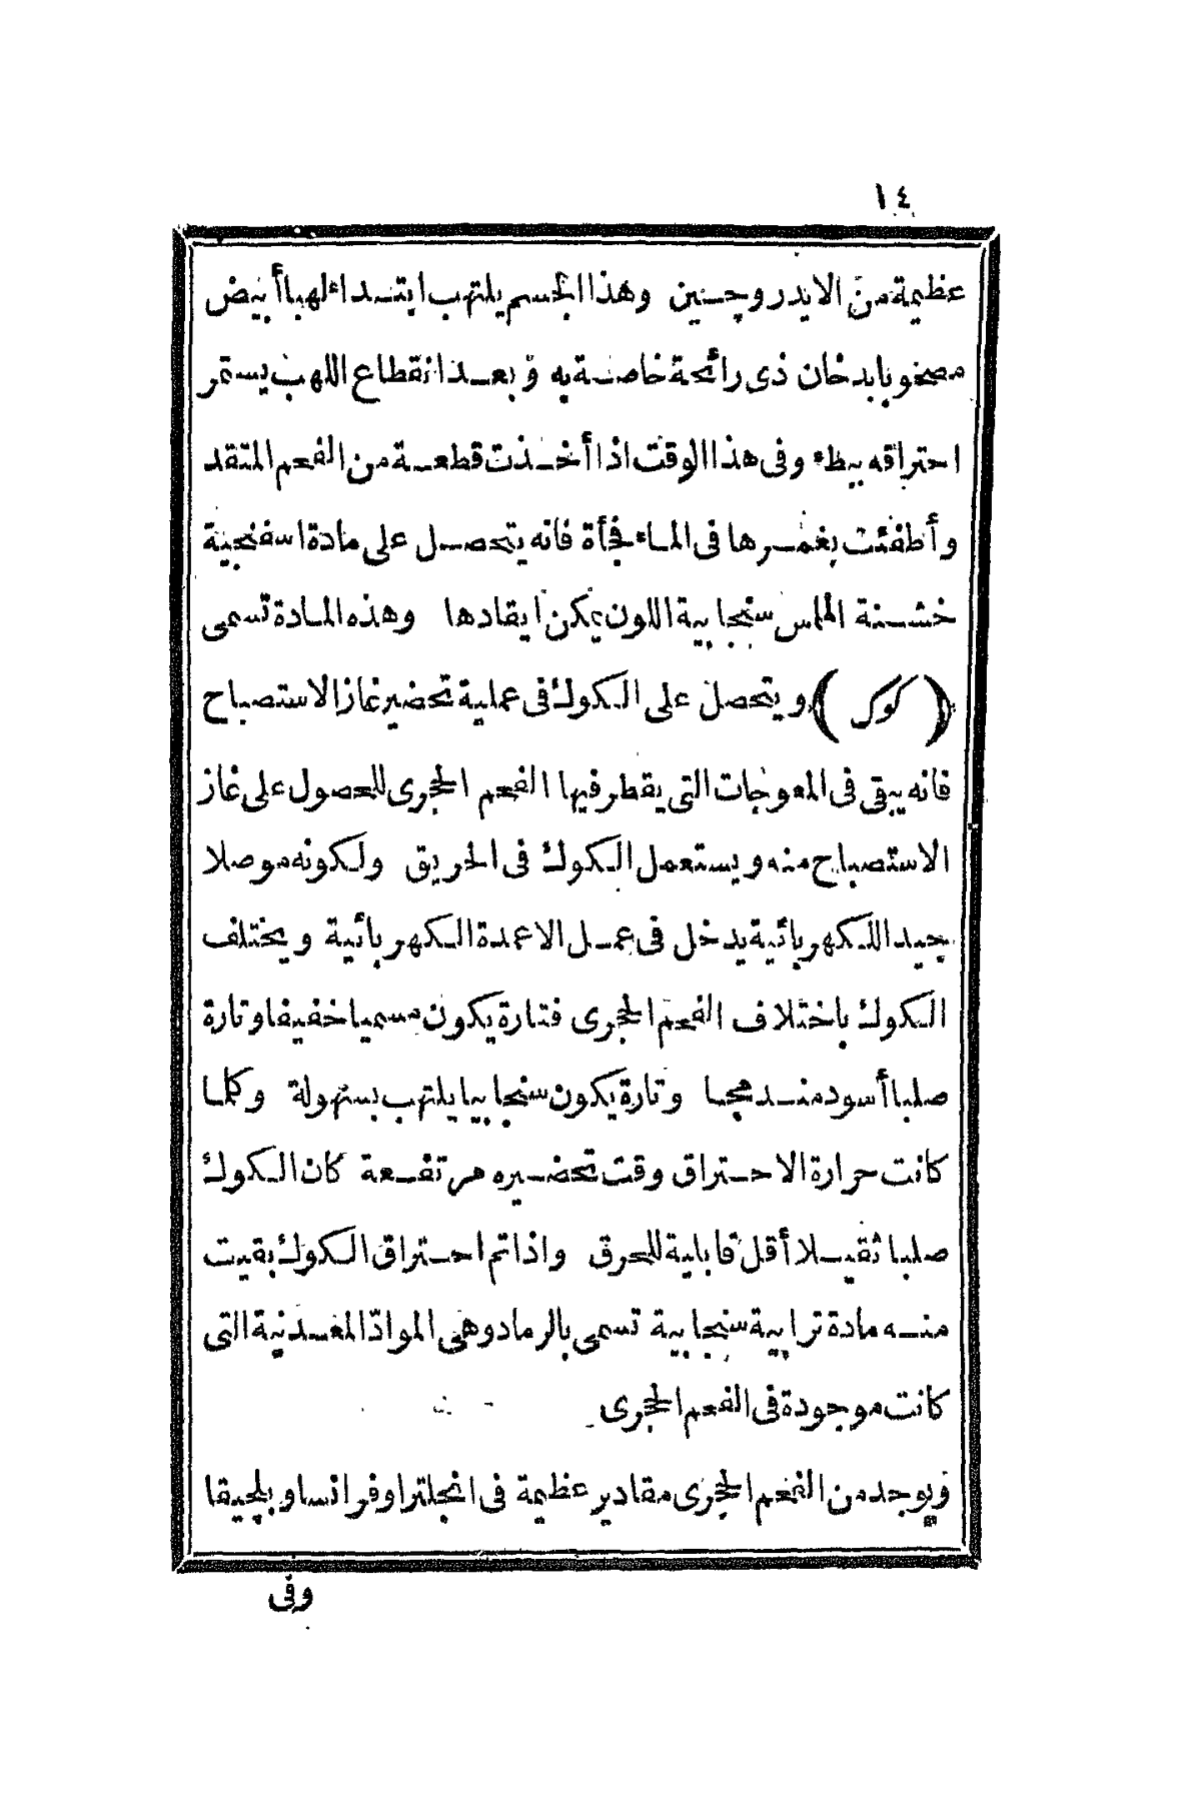 ١٤
عظيمة من الايدروچنين وهذا الجسم يلتهب ابتداء لهبا أبيض
مصحوبا بدخان ذى رائحة خاصة به وبعد انقطاع اللهب يستمر
احتراقه ببطء وفى هذا الوقت اذا أخذت قطعة من الفحم المتقد
وأطفئت بغمرها فى الماء فجأة فانه يتحصل على مادة اسفنجية
خشنة الملمس سنجابية اللون يمكن ايقادها وهذه المادة تسمى
(كوك) ويتحصل على الكوك فى عملية تحضير غاز الاستصباح
فانه يبقى فى المعوجات التى يقطر فيها الفحم الحجرى للحصول على غاز
الاستصباح منه ويستعمل الكوك فى الحريق ولكونه موصلا
جيدا للكهربائية يدخل فى عمل الاعمدة الكهربائية ويختلف
الكوك باختلاف الفحم الحجرى فتارة يكون مسميا خفيفا وتارة
صلبا أسود مندمجا وتارة يكون سنجابيا يلتهب بسهولة وكلما
كانت حرارة الاحتراق وقت تحضيره مرتفعة كان الكوك
صلبا ثقيلا أقل قابلية للحرق واذا تم احتراق الكوك بقيت
منه مادة ترابية سنجابية تسمى بالرماد وهى الموادّ المعدنية التى
كانت موجودة فى الفحم الحجرى
ويوجد من الفحم الحجرى مقادير عظيمة فى انجلترا وفرانسا وبلچيقا
وفى